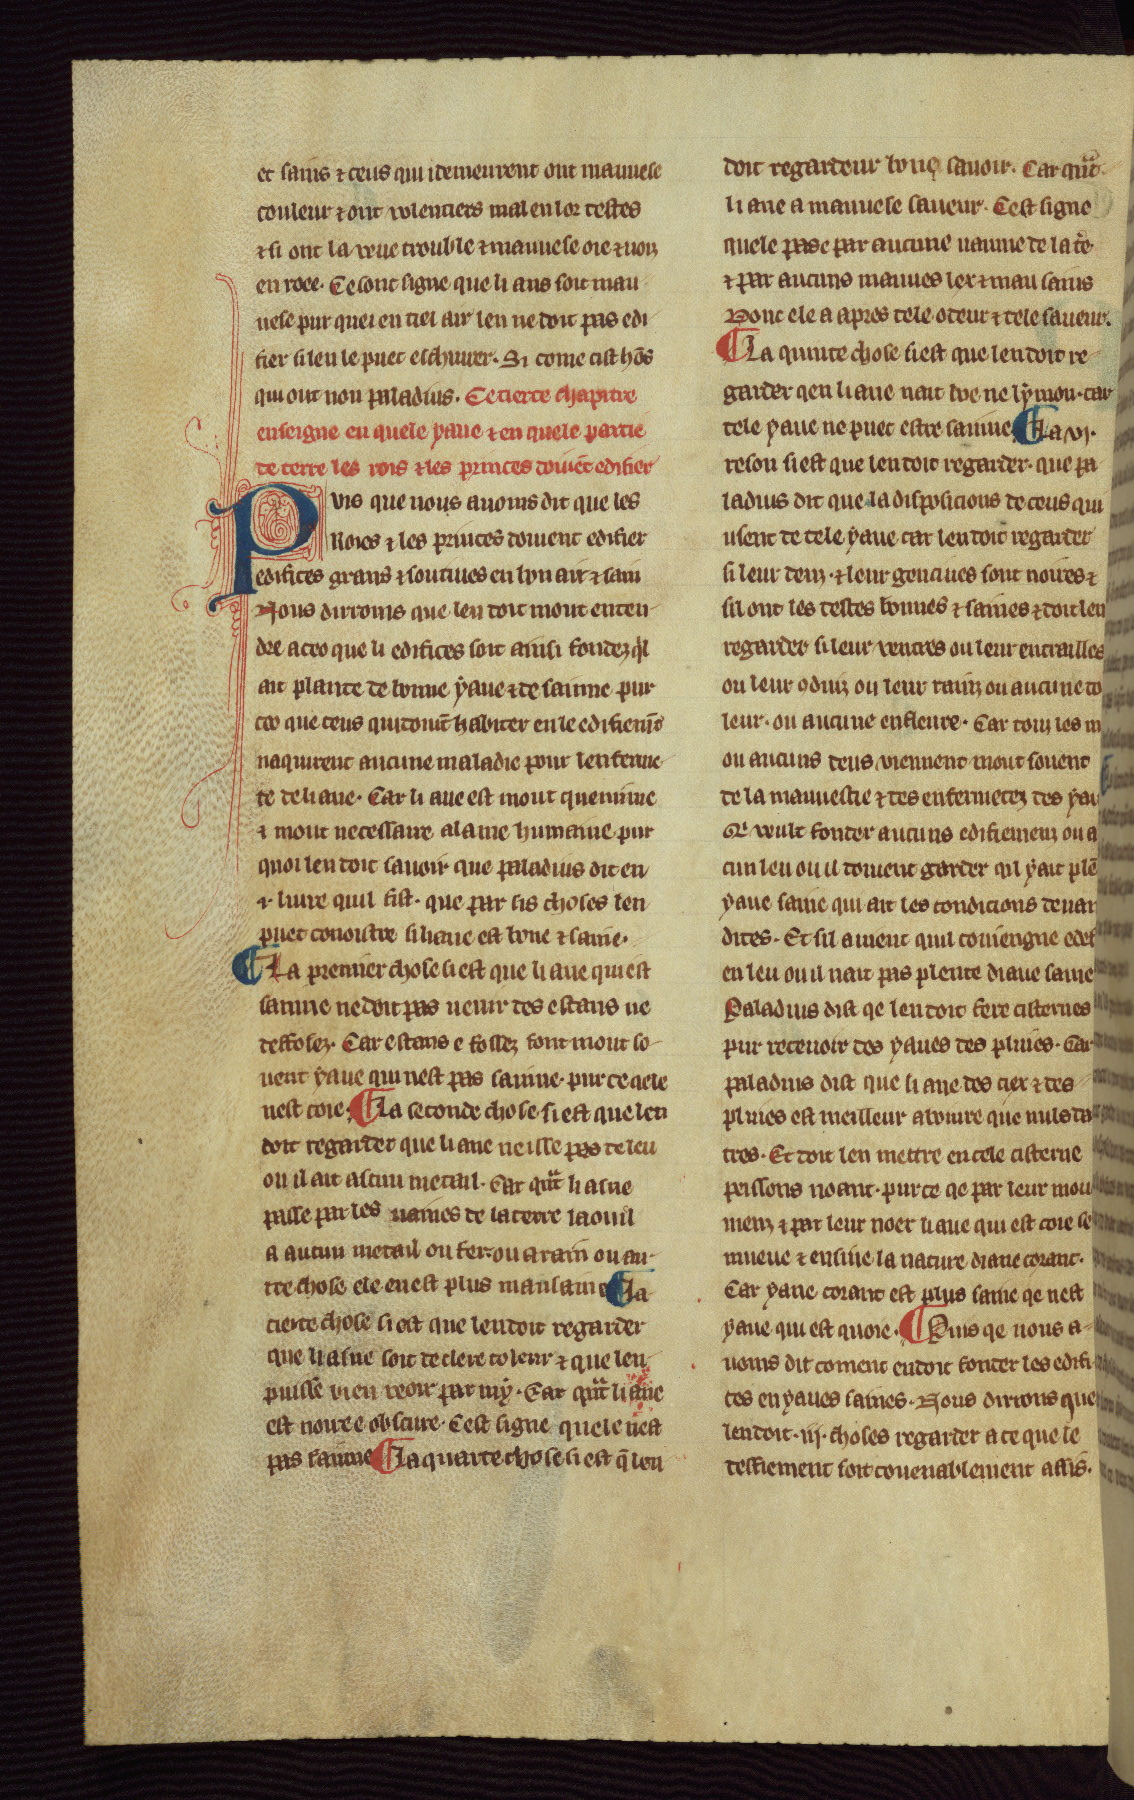 et sains ⁊ ceus qui idemeurent ont mauuese
couleur ⁊ ont volentiers mal en lor testes
⁊ si ont la veue trouble ⁊ mauuese oie ⁊ uoiz
en roee. Ce sont signe que li ans soit mau
uese pur quei en tiel air len ne doit pas edi
fier si len le puet eschuuer. Si come cist hōs
qui ont non paladius. Ce tierce chapitre
enseigne en quele yaue ⁊ en quele partie
de terre les rois ⁊ les princes doiuēt edifier
Puis que nous auoms dit que les
Roies ⁊ les princes doiuent edifier
edifices grans ⁊ soutiues en bon air ⁊ sain
Nous dirroms que len doit mout enten
dre a ceo que li edifices soit ainsi fondez qil
ait plante de bonne yaue ⁊ de sainne pur
ceo que ceus qui doiuēt habiter en le edifiemēt
naquirent aucune maladie pour lenferme
te de li aue. Car li aue est mout quemune
⁊ mout necessaire a la uie humaine pur
quoi len doit sauoir que paladius dit en
⁊ liure quil fist. que par sis choses len
puet conoistre si li aue est bone ⁊ saine.
La premier chose si est que li aue qui est
sainne ne doit pas uenir des estans ne
de fossez. Car estans e fossez font mout so
uent yaue qui nest pas sainne. pur ce qele
nest coie. La seconde chose si est que len
doit regarder que li aue ne isse pas de leu
ou il ait ascun metail. Car quāt li asue
passe par les uaines de la terre la ou il
a aucun metail ou fer. ou arain ou au
tre chose ele en est plus mausaine La
tierce chose si est que len doit regarder
que li asue soit de clere coleur ⁊ que len
puisse bien veoir par my. Car quāt li aue
est noire e obscure. Cest signe quele nest
pas sainne La quarte chose si est q̄ len
doit regardeur bone sauoir. Car quāt
li aue a mauuese saueur. Cest signe
quele passe par aucune uaine de la t̄re
⁊ par aucuns mauues lex ⁊ mau sains
Donc ele a apres tele odeur ⁊ tele saueur.
La quinte chose si est que len doit re
garder qen li aue nait boe ne lymon. car
tele yaue ne puet estre sainne La vi.
reson si est que len doit regarder. que pa
ladius dit que la disposicions de ceus qui
usent de tele yaue car len doit regarder
si leur denz. ⁊ leur gencives sont noires ⁊
sil ont les testes bonnes ⁊ saines ⁊ doit len
regarder si leur ventres ou leur entrailles
ou leur ꝯduiz ou leur rainz ou aucune do
leur. ou aucune enfleure. Car touz les m
ou aucuns deus viennent mout souent
de la mauuestie ⁊ des enfermetez des yau
veult fonder aucuns edifiemenz ou a
cun leu ou il doiuent garder qil yait plē
yaue saine qui ait les condicions deuan
dites. Et sil auient quil couiengne edef
en leu ou il nait pas plente diaue saine
Paladius dist qe len doit fere cisternes
pur receuoir des yaues des pluies. Car
paladius dist que li aue des ciex ⁊ des
pluies est meilleur a boiure que nuls da
tres. Et doit len mettre en cele cisterne
peissons noant. pur ce qe par leur mou
menz ⁊ par leur noer li aue qui est coie se
mueue ⁊ ensiue la nature diaue corant.
Car yaue corant est plus saine qe nest
yaue qui est quoie. Puis qe nous a
uoms dit coment en doit fonder les edifi
ces en yaues saines. Nous dirroms que
len doit. iij. choses regarder a ce que le
defiement soit couenablement assis.